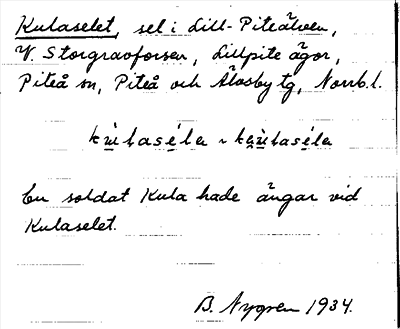 Kulaselet, sel i Lill-Piteälven,
V. Storgraoforsen, Lillpite ägor,
Piteå sn, Piteå och Älvsby tg, Norrb.l.
En soldat Kula hade ängar vid
Kulaselet.
B. Nygren 1934.